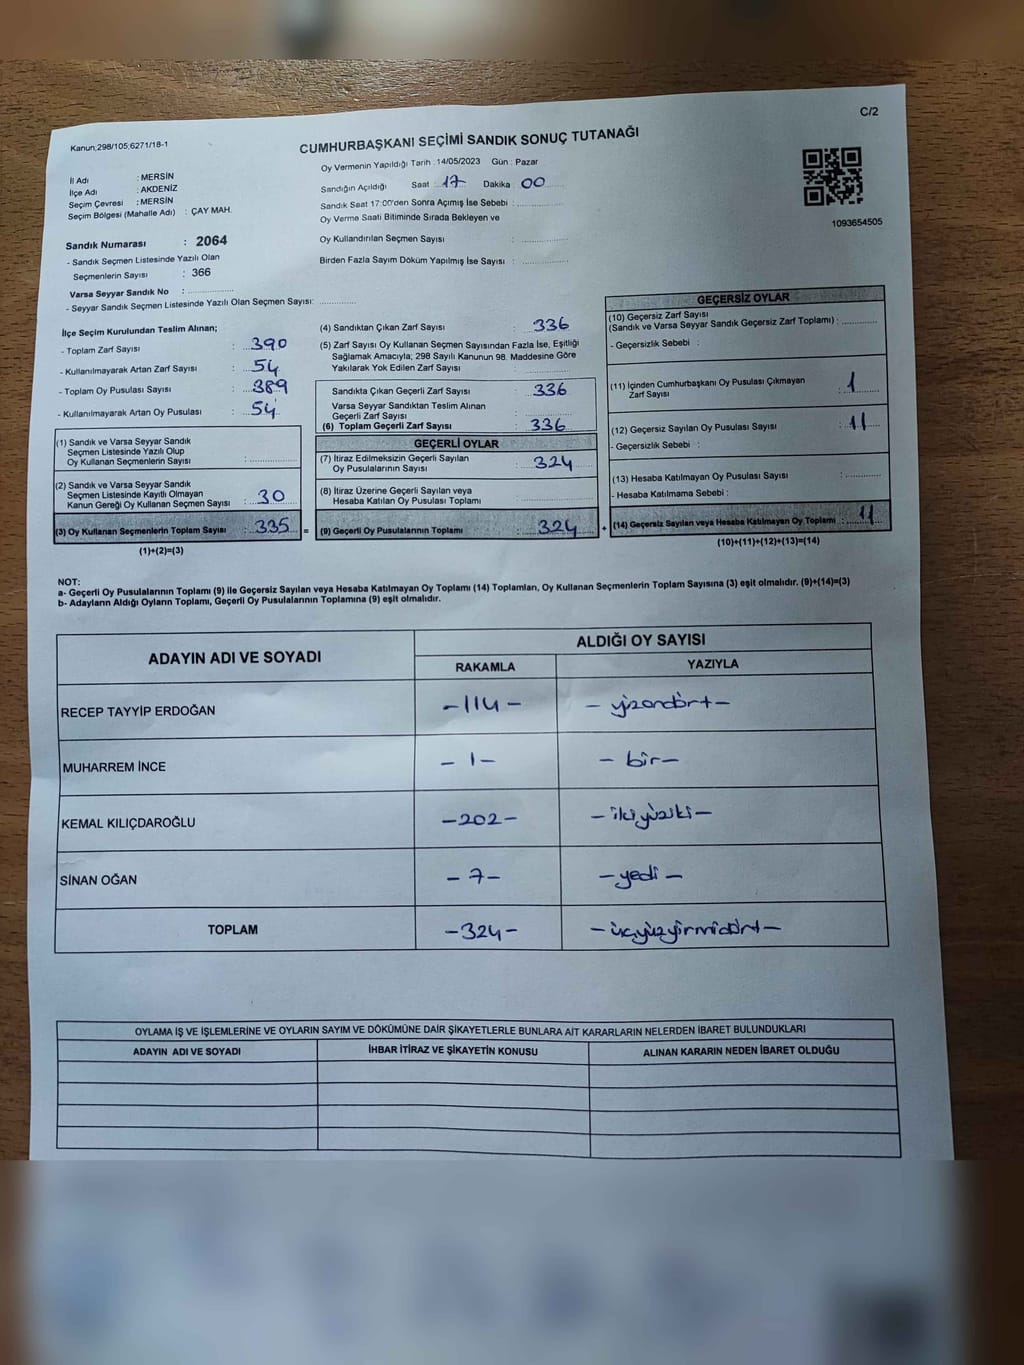 C/2
Kanun;298/105;6271/18-1
CUMHURBAŞKANI SEÇİMİ SANDIK SONUÇ TUTANAĞI
İl Adı : MERSİN
İlçe Adı : AKDENİZ
Seçim Çevresi : MERSİN
Seçim Bölgesi (Mahalle Adı) : ÇAY MAH.
Oy Vermenin Yapıldığı Tarih : 14/05/2023 Gün : Pazar
Sandığın Açıldığı Saat : 17 Dakika : 00
Sandık Saat 17:00'den Sonra Açımış İse Sebebi :
Oy Verme Saati Bitiminde Sırada Bekleyen ve
Oy Kullandırılan Seçmen Sayısı :
Birden Fazla Sayım Döküm Yapılmış İse Sayısı :
1093654505
Sandık Numarası : 2064
- Sandık Seçmen Listesinde Yazılı Olan
Seçmenlerin Sayısı : 366
Varsa Seyyar Sandık No :
- Seyyar Sandık Seçmen Listesinde Yazılı Olan Seçmen Sayısı:
İlçe Seçim Kurulundan Teslim Alınan;
- Toplam Zarf Sayısı : 390
- Kullanılmayarak Artan Zarf Sayısı : 54
- Toplam Oy Pusulası Sayısı : 389
- Kullanılmayarak Artan Oy Pusulası : 54
(1) Sandık ve Varsa Seyyar Sandık
Seçmen Listesinde Yazılı Olup
Oy Kullanan Seçmenlerin Sayısı :
(2) Sandık ve Varsa Seyyar Sandık
Seçmen Listesinde Kayıtlı Olmayan
Kanun Gereği Oy Kullanan Seçmen Sayısı : 30
(3) Oy Kullanan Seçmenlerin Toplam Sayısı : 335 =
(1)+(2)=(3)
(4) Sandıktan Çıkan Zarf Sayısı : 336
(5) Zarf Sayısı Oy Kullanan Seçmen Sayısından Fazla İse, Eşitliği
Sağlamak Amacıyla; 298 Sayılı Kanunun 98. Maddesine Göre
Yakılarak Yok Edilen Zarf Sayısı :
Sandıkta Çıkan Geçerli Zarf Sayısı : 336
Varsa Seyyar Sandıktan Teslim Alınan
Geçerli Zarf Sayısı :
(6) Toplam Geçerli Zarf Sayısı : 336
GEÇERLİ OYLAR
(7) İtiraz Edilmeksizin Geçerli Sayılan
Oy Pusulalarının Sayısı : 324
(8) İtiraz Üzerine Geçerli Sayılan veya
Hesaba Katılan Oy Pusulası Toplamı :
(9) Geçerli Oy Pusulalarının Toplamı : 324 +
GEÇERSİZ OYLAR
(10) Geçersiz Zarf Sayısı
(Sandık ve Varsa Seyyar Sandık Geçersiz Zarf Toplamı) :
- Geçersizlik Sebebi :
(11) İçinden Cumhurbaşkanı Oy Pusulası Çıkmayan
Zarf Sayısı : 1
(12) Geçersiz Sayılan Oy Pusulası Sayısı : 11
- Geçersizlik Sebebi :
(13) Hesaba Katılmayan Oy Pusulası Sayısı :
- Hesaba Katılmama Sebebi :
(14) Geçersiz Sayılan veya Hesaba Katılmayan Oy Toplamı : 11
(10)+(11)+(12)+(13)=(14)
NOT:
a- Geçerli Oy Pusulalarının Toplamı (9) ile Geçersiz Sayılan veya Hesaba Katılmayan Oy Toplamı (14) Toplamları, Oy Kullanan Seçmenlerin Toplam Sayısına (3) eşit olmalıdır. (9)+(14)=(3)
b- Adayların Aldığı Oyların Toplamı, Geçerli Oy Pusulalarının Toplamına (9) eşit olmalıdır.
ADAYIN ADI VE SOYADI ALDIĞI OY SAYISI
RAKAMLA YAZIYLA
RECEP TAYYİP ERDOĞAN -114- - yüzondört -
MUHARREM İNCE - 1 - - bir -
KEMAL KILIÇDAROĞLU -202- - ikiyüziki -
SİNAN OĞAN - 7 - - yedi -
TOPLAM -324- - üçyüzyirmidört -
OYLAMA İŞ VE İŞLEMLERİNE VE OYLARIN SAYIM VE DÖKÜMÜNE DAİR ŞİKAYETLERLE BUNLARA AİT KARARLARIN NELERDEN İBARET BULUNDUKLARI
ADAYIN ADI VE SOYADI İHBAR İTİRAZ VE ŞİKAYETİN KONUSU ALINAN KARARIN NEDEN İBARET OLDUĞU